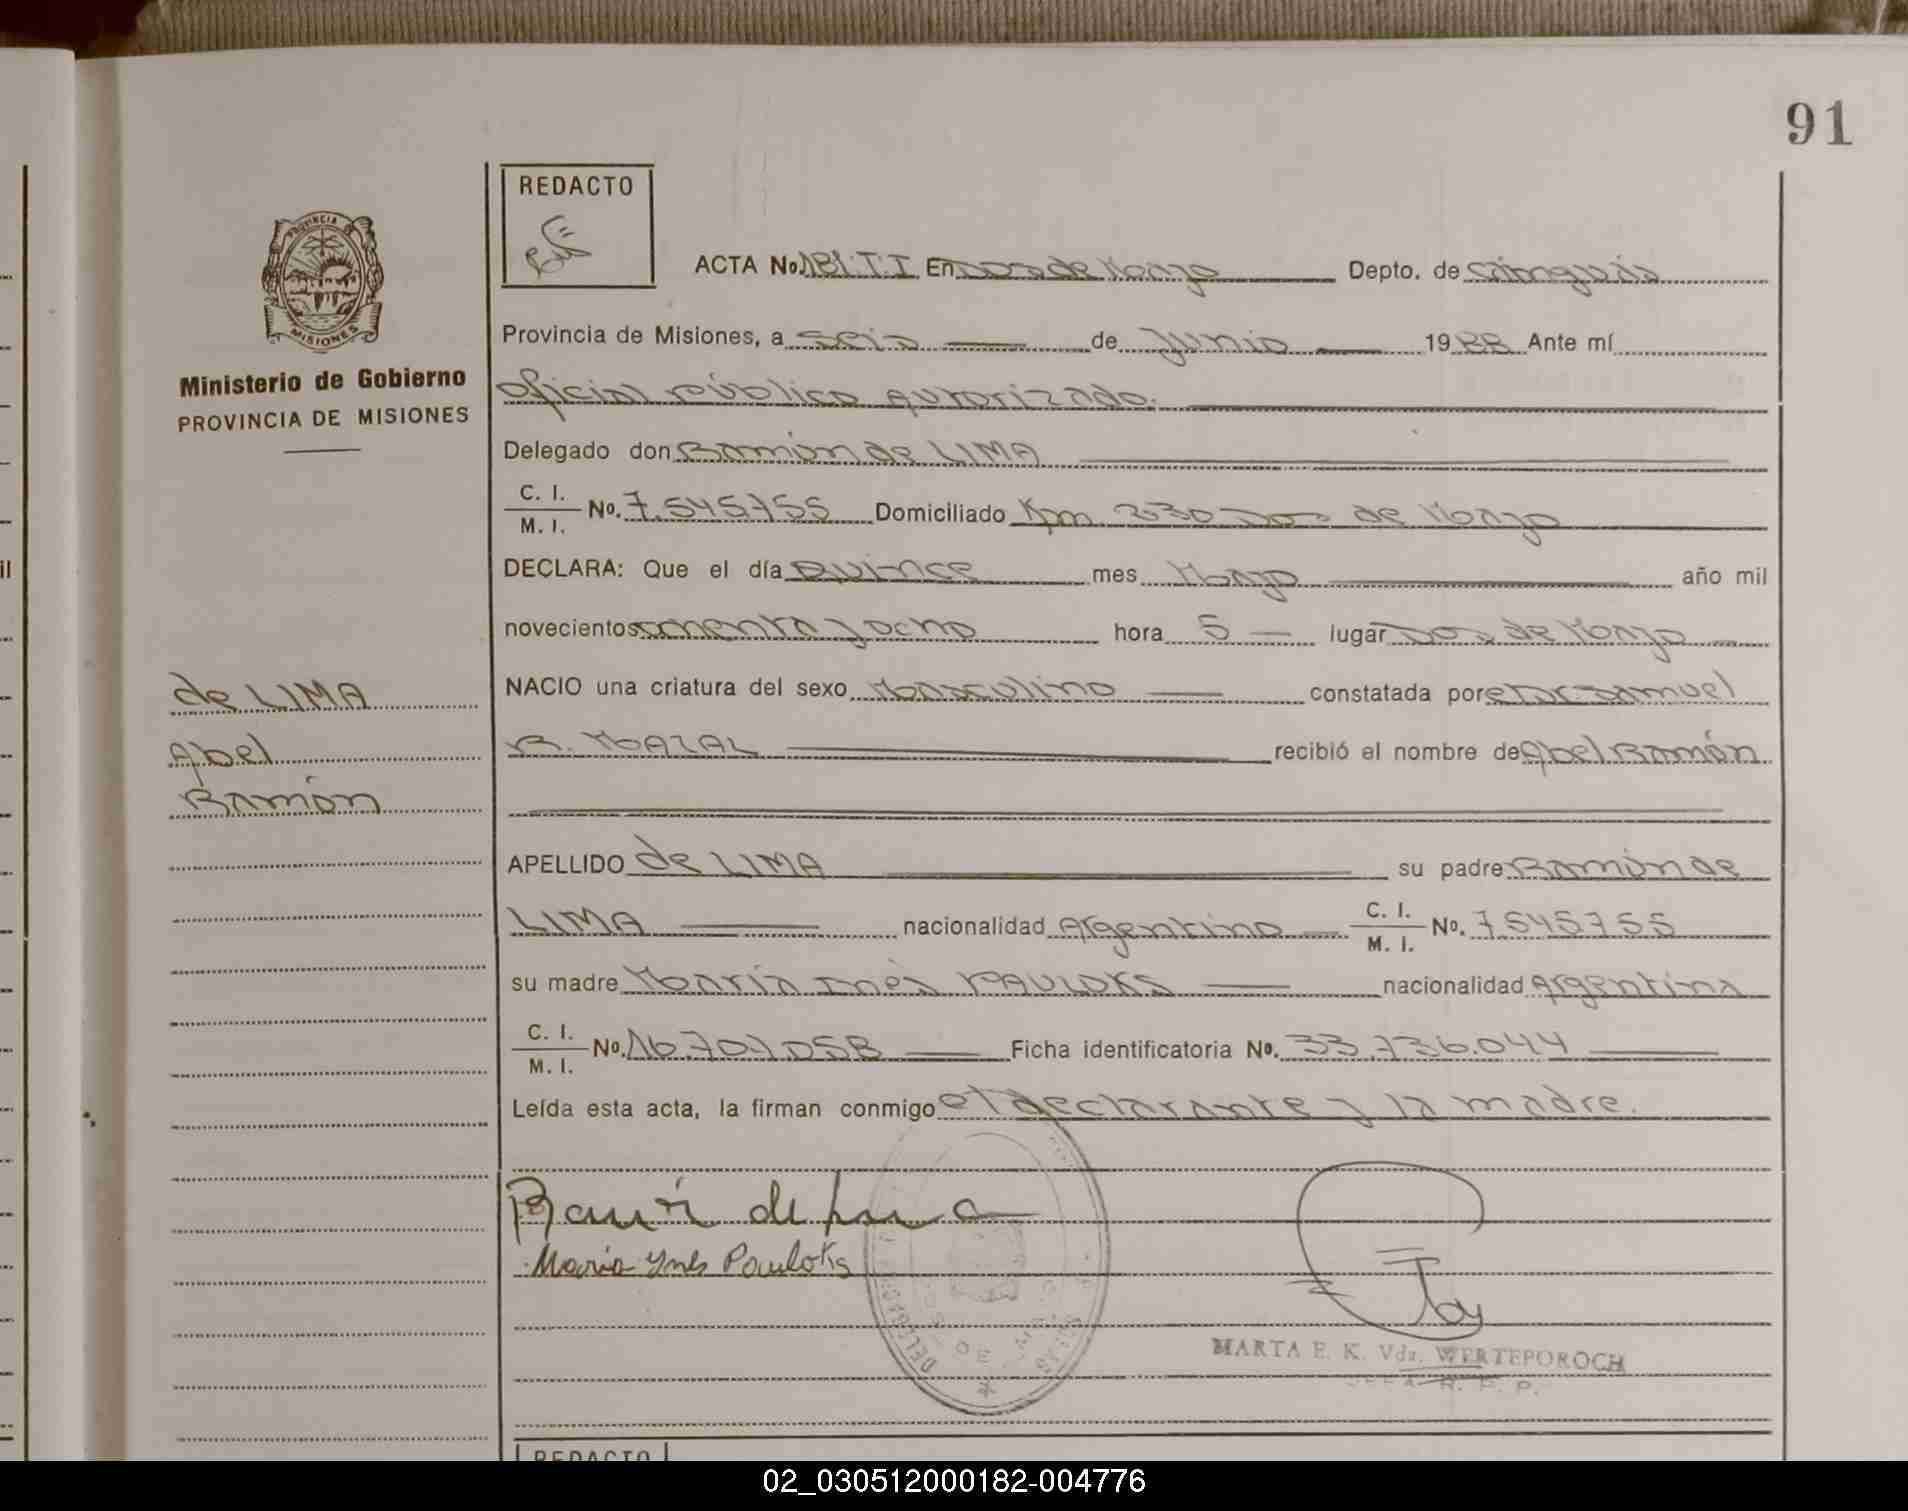 91
REDACTO
PROVINCIA
MISIONES
Ministerio de Gobierno
PROVINCIA DE MISIONES
ACTA No. 181.T.I En Dos de Mayo Depto. de Cainguás
Provincia de Misiones, a seis de Junio 1988 Ante mí
Oficial Público Autorizado.
Delegado don Ramón de LIMA
C. I. / M. I. No. 7.545755 Domiciliado Km. 230 Dos de Mayo
DECLARA: Que el día Quince mes Mayo año mil
novecientos ochenta y ocho hora 5 lugar Dos de Mayo
NACIO una criatura del sexo Masculino constatada por el Dr. Samuel
R. MAZAL recibió el nombre de Abel Ramón
de LIMA
Abel
Ramón
APELLIDO de LIMA su padre Ramón de
LIMA nacionalidad Argentino C. I. / M. I. No. 7.545755
su madre María Inés PAULOKS nacionalidad Argentina
C. I. / M. I. No. 16.707.058 Ficha identificatoria No. 33.736.044
Leída esta acta, la firman conmigo el declarante y la madre.
Ramón de Lima
Maria Ynes Pauloks
MARTA E. K. Vda. WERTEPOROCH
REDACTO
02_030512000182-004776